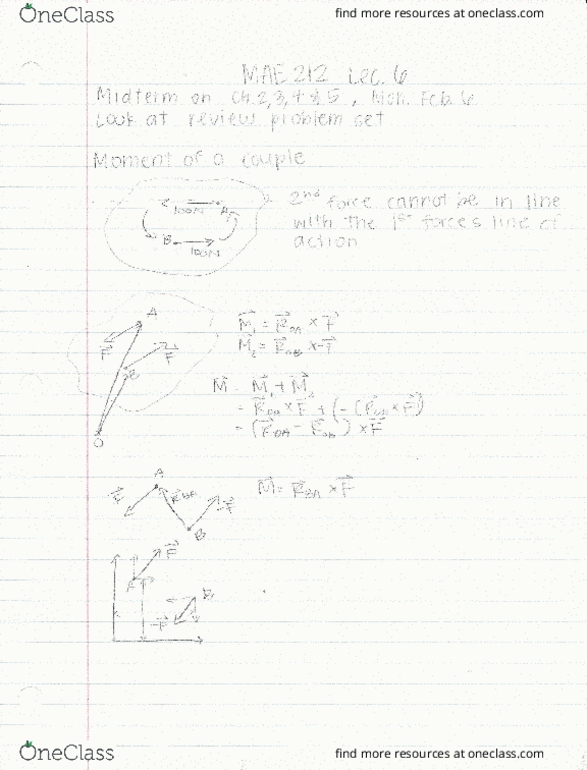 OneClass
find more resources at oneclass.com
MAE 212 Lec. 6
Midterm on Ch. 2,3,4 & 5, Mon. Feb. 6
Look at review problem set
Moment of a couple
2nd force cannot be in line
with the 1st force's line of
action
100N A
B 100N
A
F
-F
B
O
M₁ = R_OA × F
M₂ = R_OB × -F
M = M₁ + M₂
= R_OA × F + (-(R_OB × F))
= (R_OA - R_OB) × F
A
F
R_BA
-F
B
M = R_BA × F
F
A
B
-F
OneClass
find more resources at oneclass.com